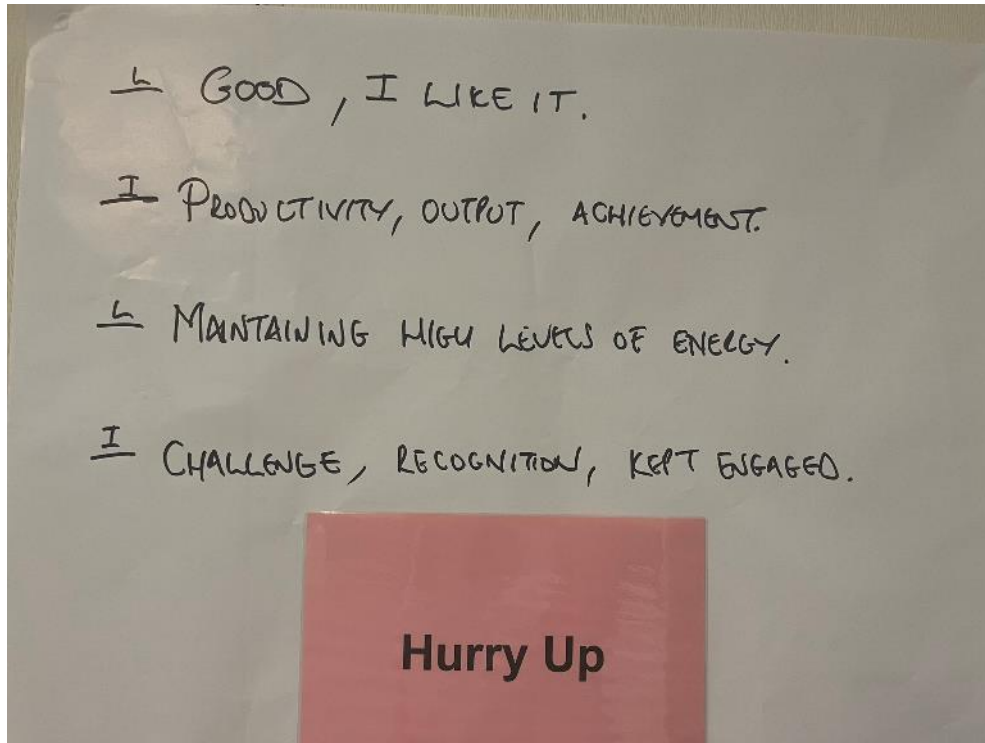 L GOOD, I LIKE IT.
I PRODUCTIVITY, OUTPUT, ACHIEVEMENT.
L MAINTAINING HIGH LEVELS OF ENERGY.
I CHALLENGE, RECOGNITION, KEPT ENGAGED.
Hurry Up